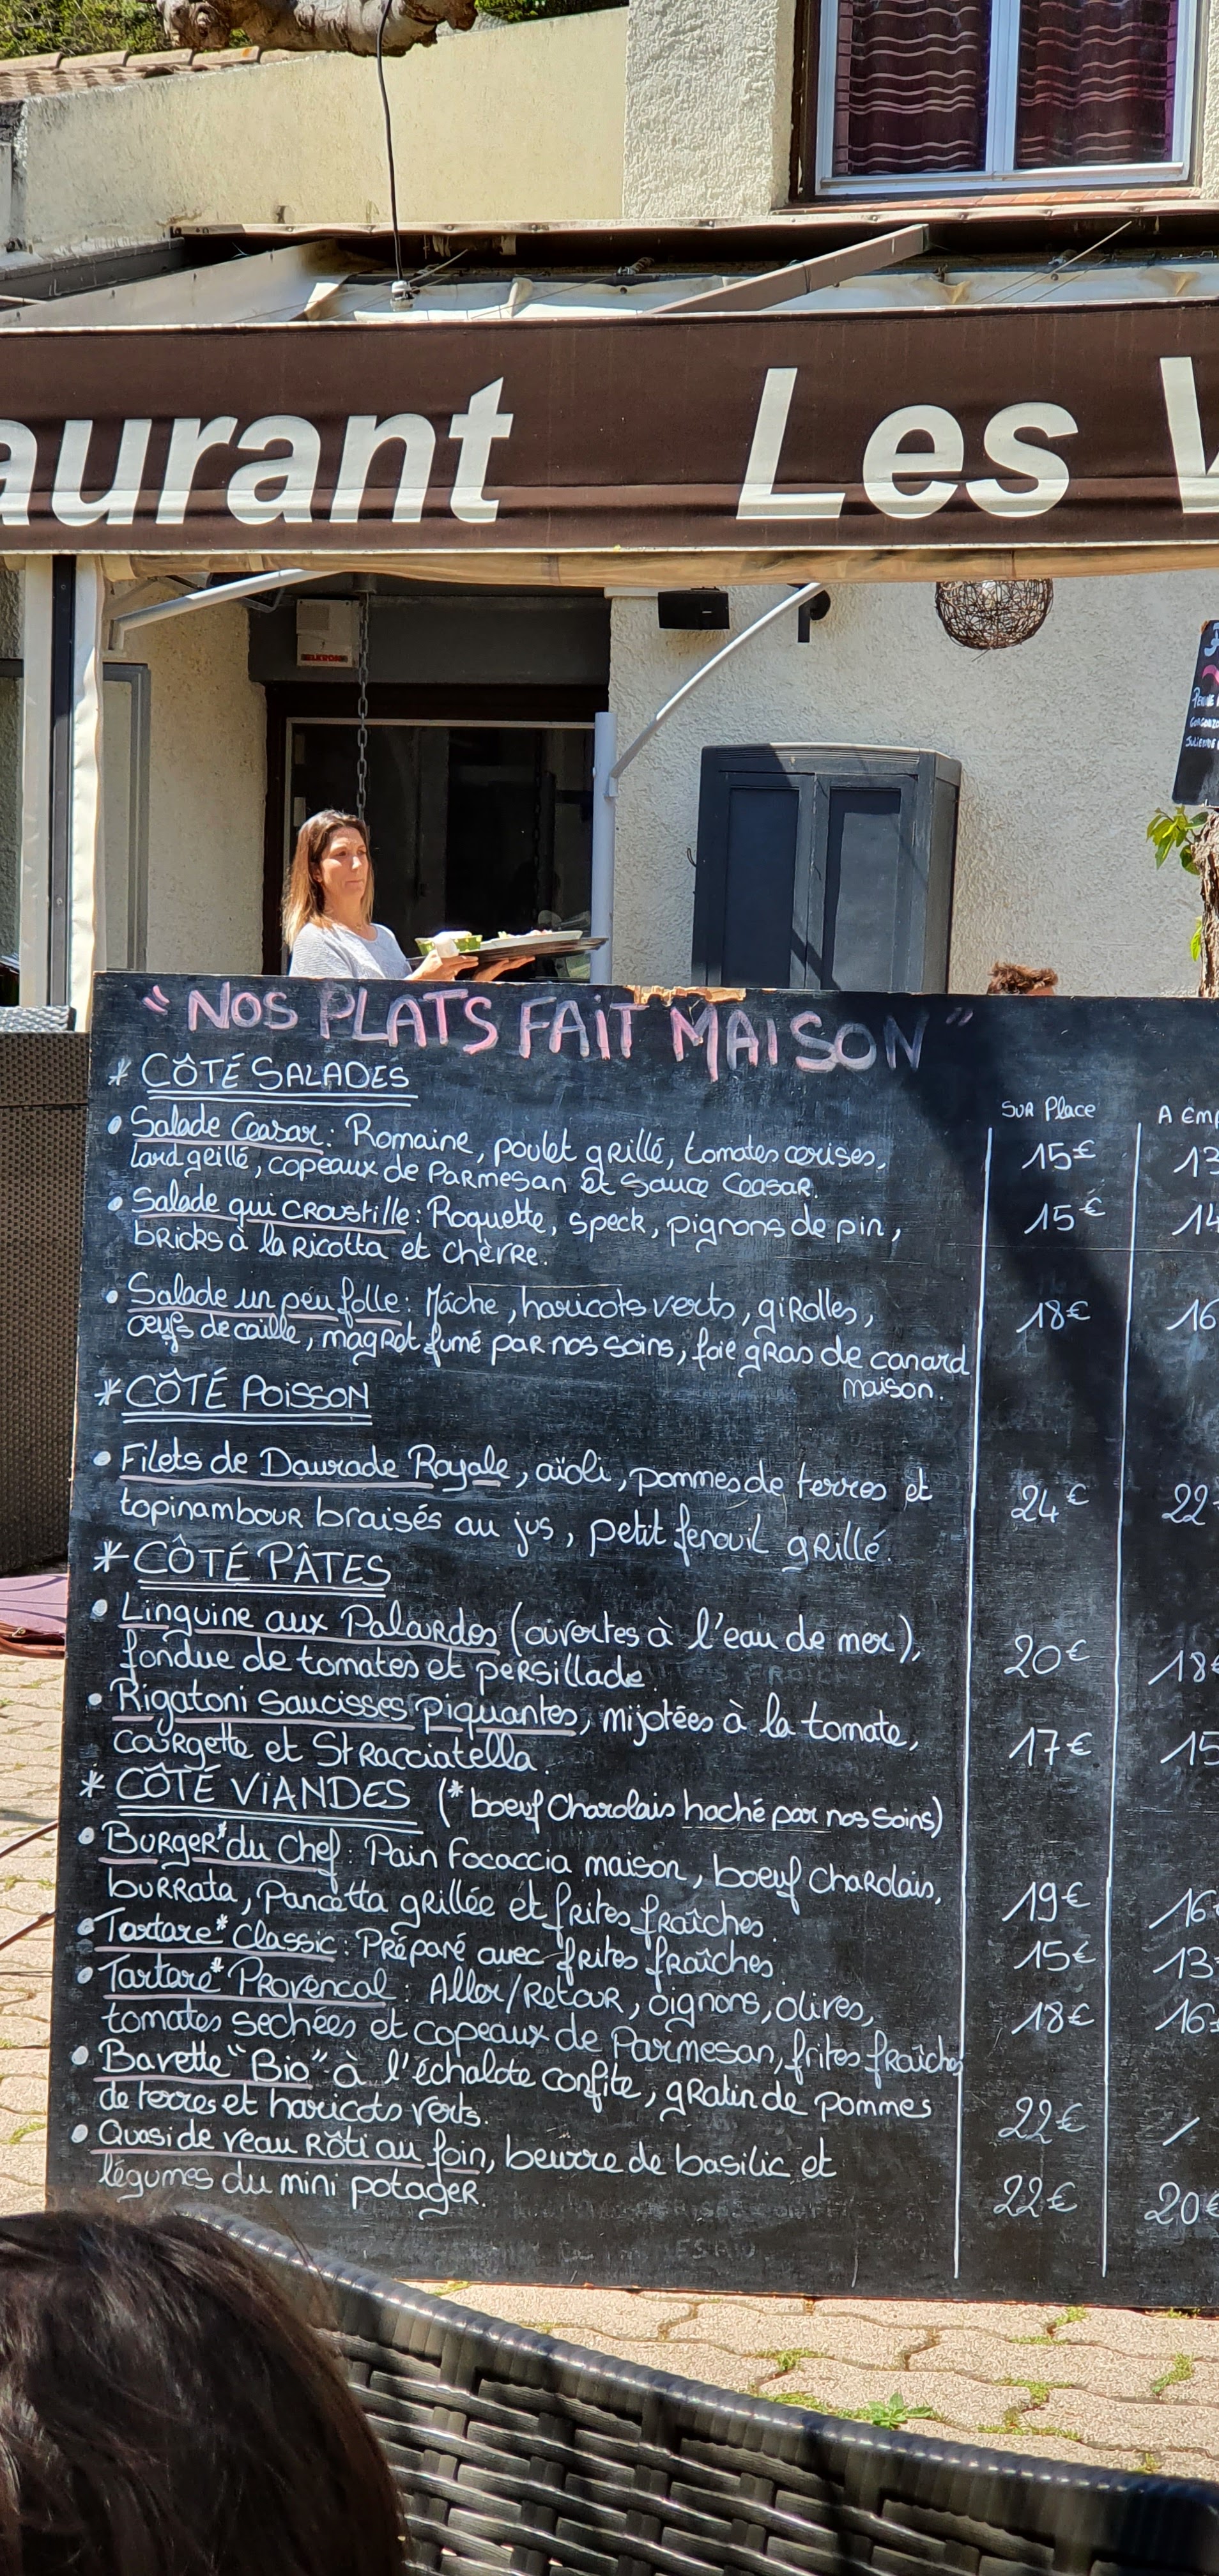 aurant Les V
ELKRON
PENNE
" NOS PLATS FAIT MAISON "
* CÔTÉ SALADES
SUR Place
A Emp
• Salade Ceasar : Romaine, poulet grillé, tomates cerises,
15€
13
lard geillé, copeaux de Parmesan et sauce Ceasar.
• Salade qui croustille : Roquette, speck, pignons de pin,
15€
14
bricks à la Ricotta et chèvre.
• Salade un peu folle : Mâche, haricots verts, girolles,
18€
16
œufs de caille, magret fumé par nos soins, foie gras de canard
maison.
* CÔTÉ POISSON
• Filets de Daurade Royale, aïoli, pommes de terres et
24€
22
topinambour braisés au jus, petit fenouil grillé.
* CÔTÉ PÂTES
• Linguine aux Palourdes (ouvertes à l'eau de mer),
20€
18€
fondue de tomates et persillade.
• Rigatoni Saucisses Piquantes, mijotées à la tomate,
17€
15
courgette et Stracciatella.
* CÔTÉ VIANDES (* boeuf Charolais haché par nos soins)
• Burger* du Chef : Pain Focaccia maison, boeuf Charolais,
19€
16
burrata, Pancetta grillée et frites fraîches.
• Tartare* Classic : Préparé avec frites fraîches.
15€
13
• Tartare* Provencal : Aller/Retour, oignons, olives,
18€
16
tomates sechées et copeaux de Parmesan, frites fraîches
• Bavette "Bio" à l'échalote confite, gratin de pommes
22€
/
de terres et haricots verts.
• Quasi de veau Rôti au foin, beurre de basilic et
22€
20€
légumes du mini potager.